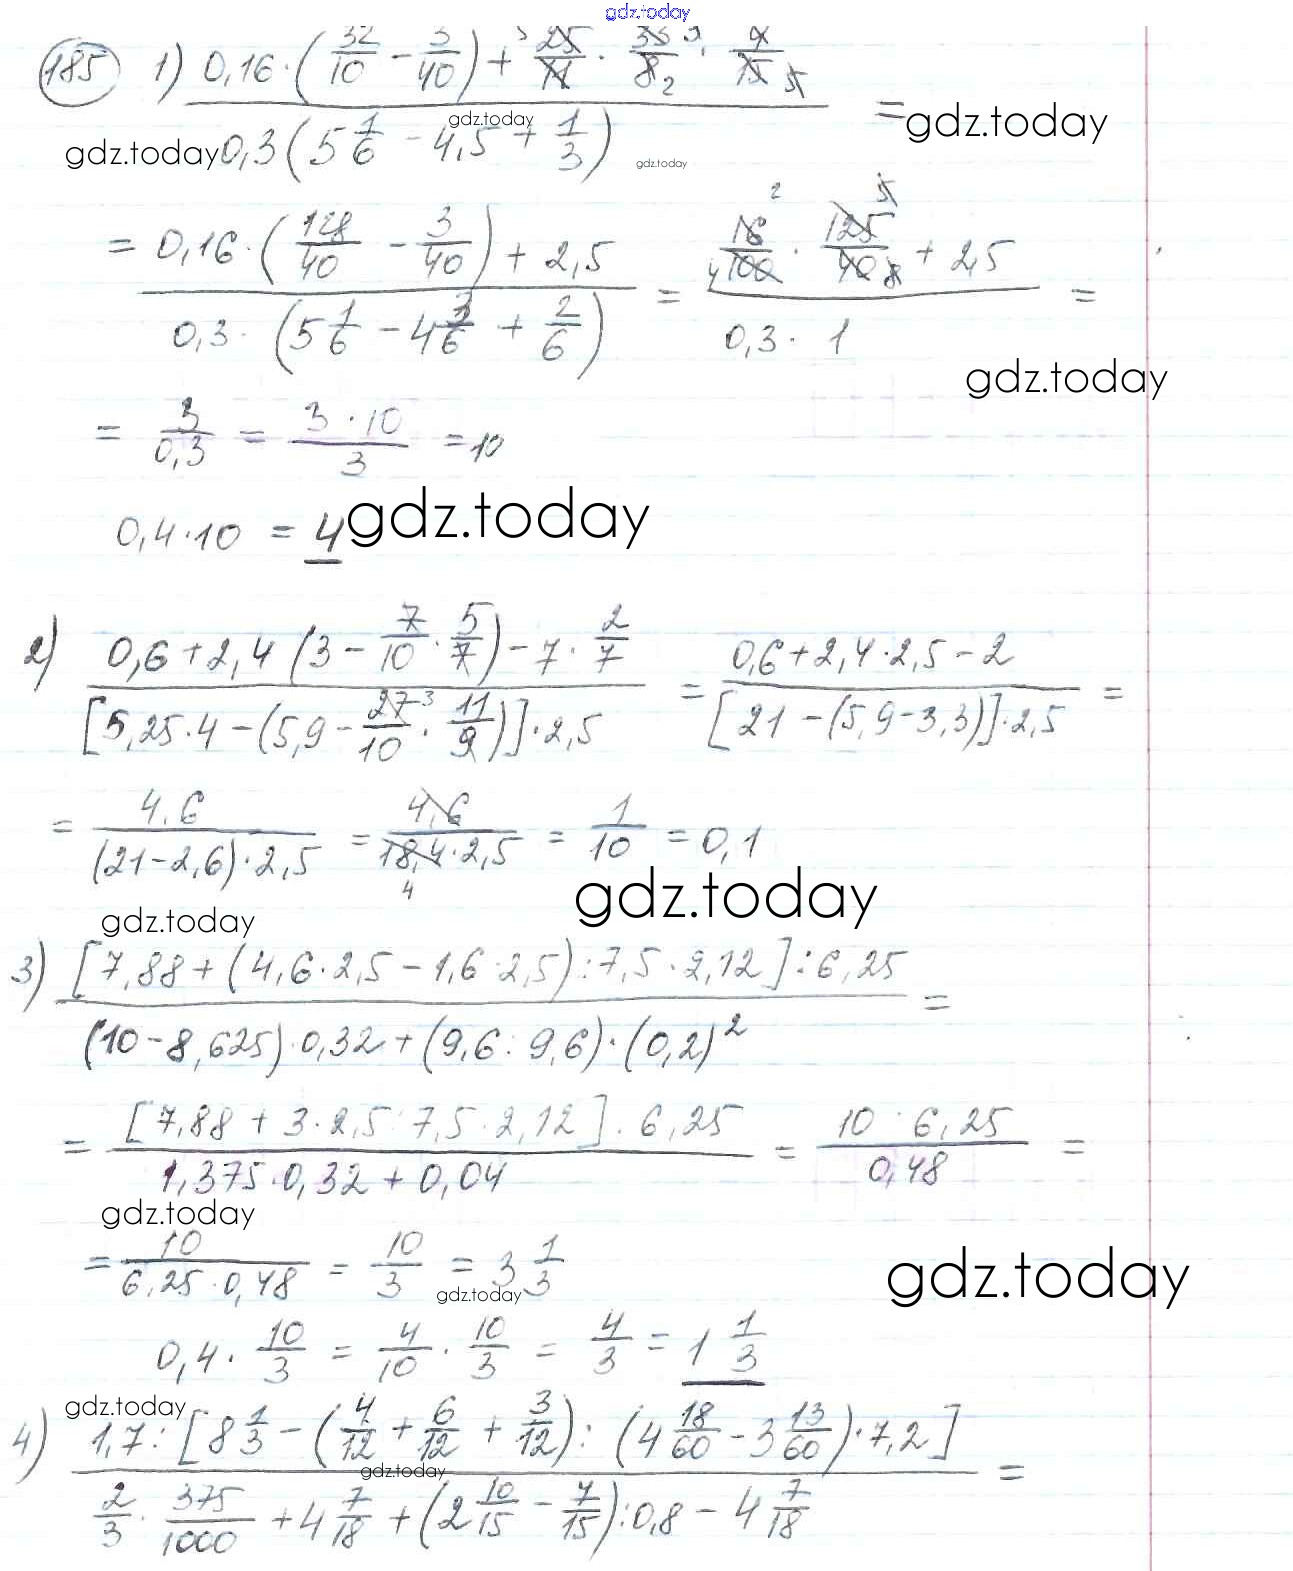 gdz.today
185 1) (0,16·(32/10 − 3/40) + 25/14 · 35/8 · 4/15) / (0,3(5 1/6 − 4,5 + 1/3)) =
gdz.today gdz.today gdz.today gdz.today
= (0,16·(128/40 − 3/40) + 2,5) / (0,3·(5 1/6 − 4 3/6 + 2/6)) = (16/100 · 125/40 + 2,5) / (0,3·1) =
gdz.today
= 3/0,3 = (3·10)/3 = 10
0,4·10 = 4 gdz.today
2) (0,6+2,4(3 − 7/10 · 5/7) − 7· 2/7) / ([5,25·4−(5,9− 27/10 · 11/9)]·2,5) = (0,6+2,4·2,5−2) / ([21−(5,9−3,3)]·2,5) =
= 4,6 / ((21−2,6)·2,5) = 4,6 / (18,4·2,5) = 1/10 = 0,1
gdz.today gdz.today
3) ([7,88+(4,6·2,5−1,6·2,5):7,5·2,12]:6,25) / ((10−8,625)·0,32+(9,6:9,6)·(0,2)²) =
= ([7,88+3·2,5:7,5·2,12]:6,25) / (1,375·0,32+0,04) = (10:6,25) / 0,48 =
gdz.today
= 10 / (6,25·0,48) = 10/3 = 3 1/3
gdz.today gdz.today
0,4· 10/3 = 4/10 · 10/3 = 4/3 = 1 1/3
gdz.today
4) (1,7:[8 1/3 −(4/12 + 6/12 + 3/12):(4 18/60 − 3 13/60)·7,2]) / (2/3 · 375/1000 + 4 7/18 + (2 10/15 − 7/15):0,8 − 4 7/18) =
gdz.today